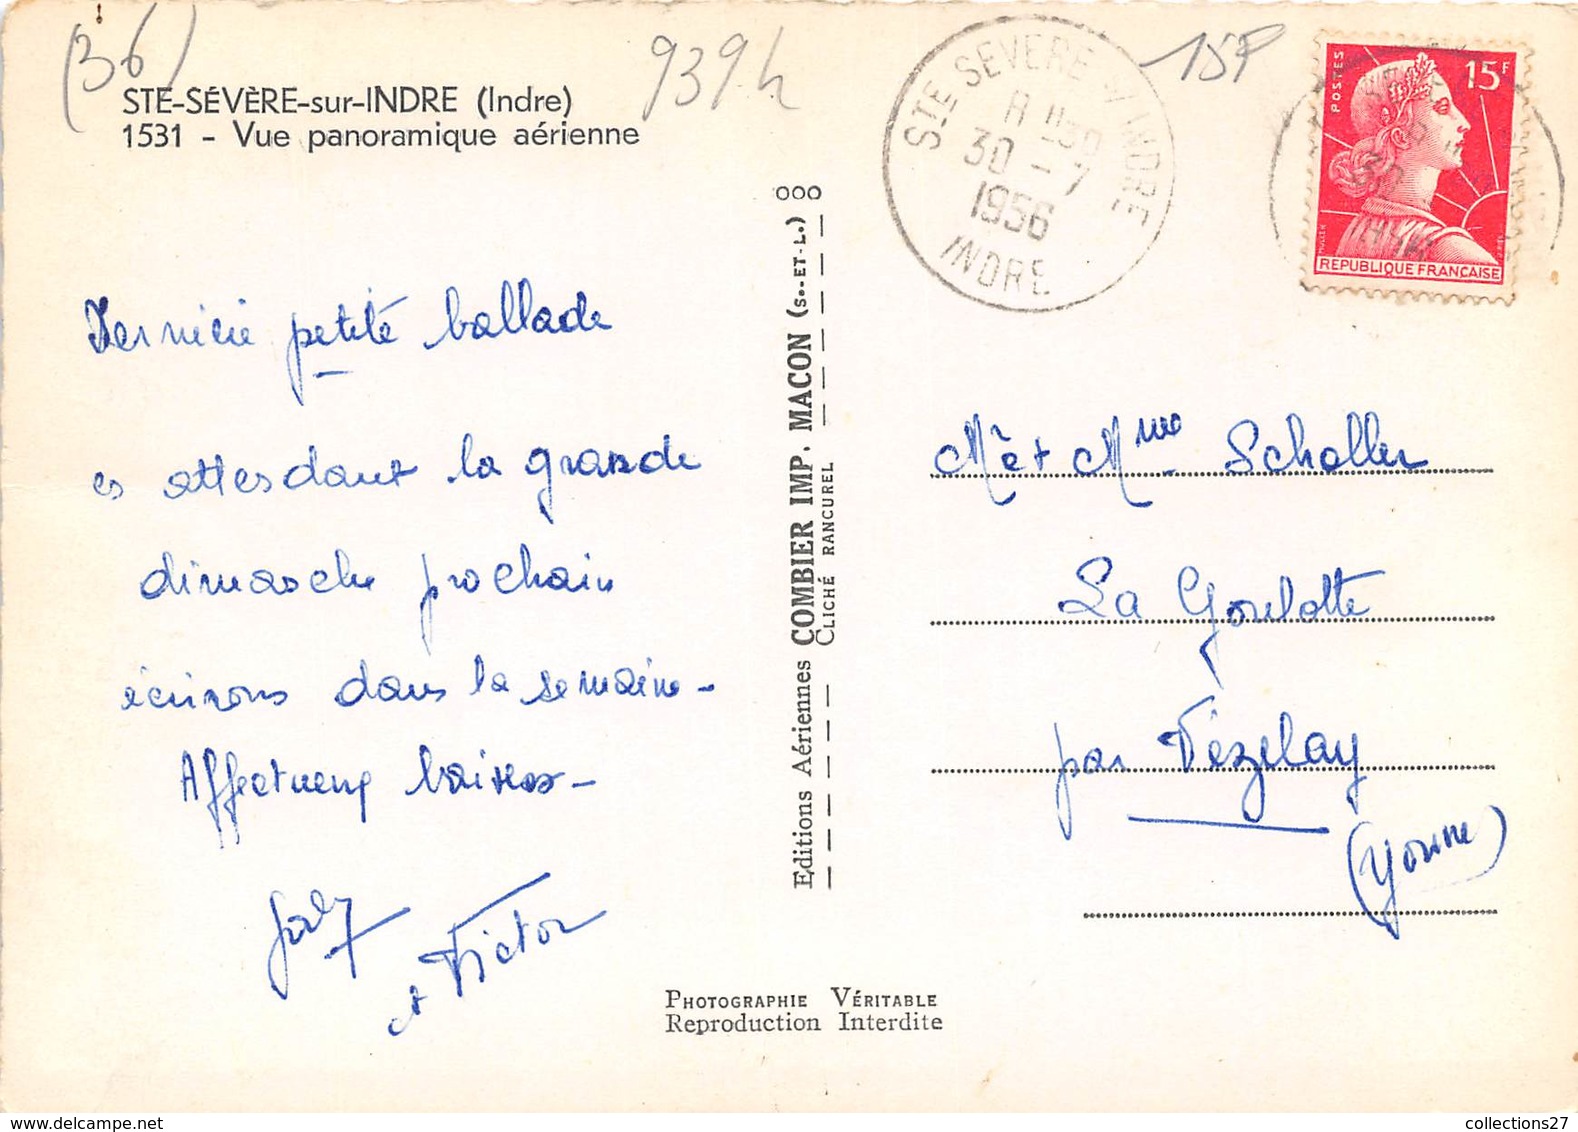 (36)
939h
15F
STE-SÉVÈRE-sur-INDRE (Indre)
1531 - Vue panoramique aérienne
STE SEVERE S/INDRE
30 - 7
1956
INDRE
POSTES
15F
MULLER
REPUBLIQUE FRANÇAISE
Dernière petite ballade
en attendant la grande
dimanche prochain
écrirons dans la semaine -
Affectueux baisers -
et Victor
ooo
Editions Aériennes COMBIER IMP. MACON (S.-ET-L.)
CLICHÉ RANCUREL
Mr et Mme Scholler
La Goulotte
par Vézelay
(Yonne)
PHOTOGRAPHIE VÉRITABLE
Reproduction Interdite
collections27